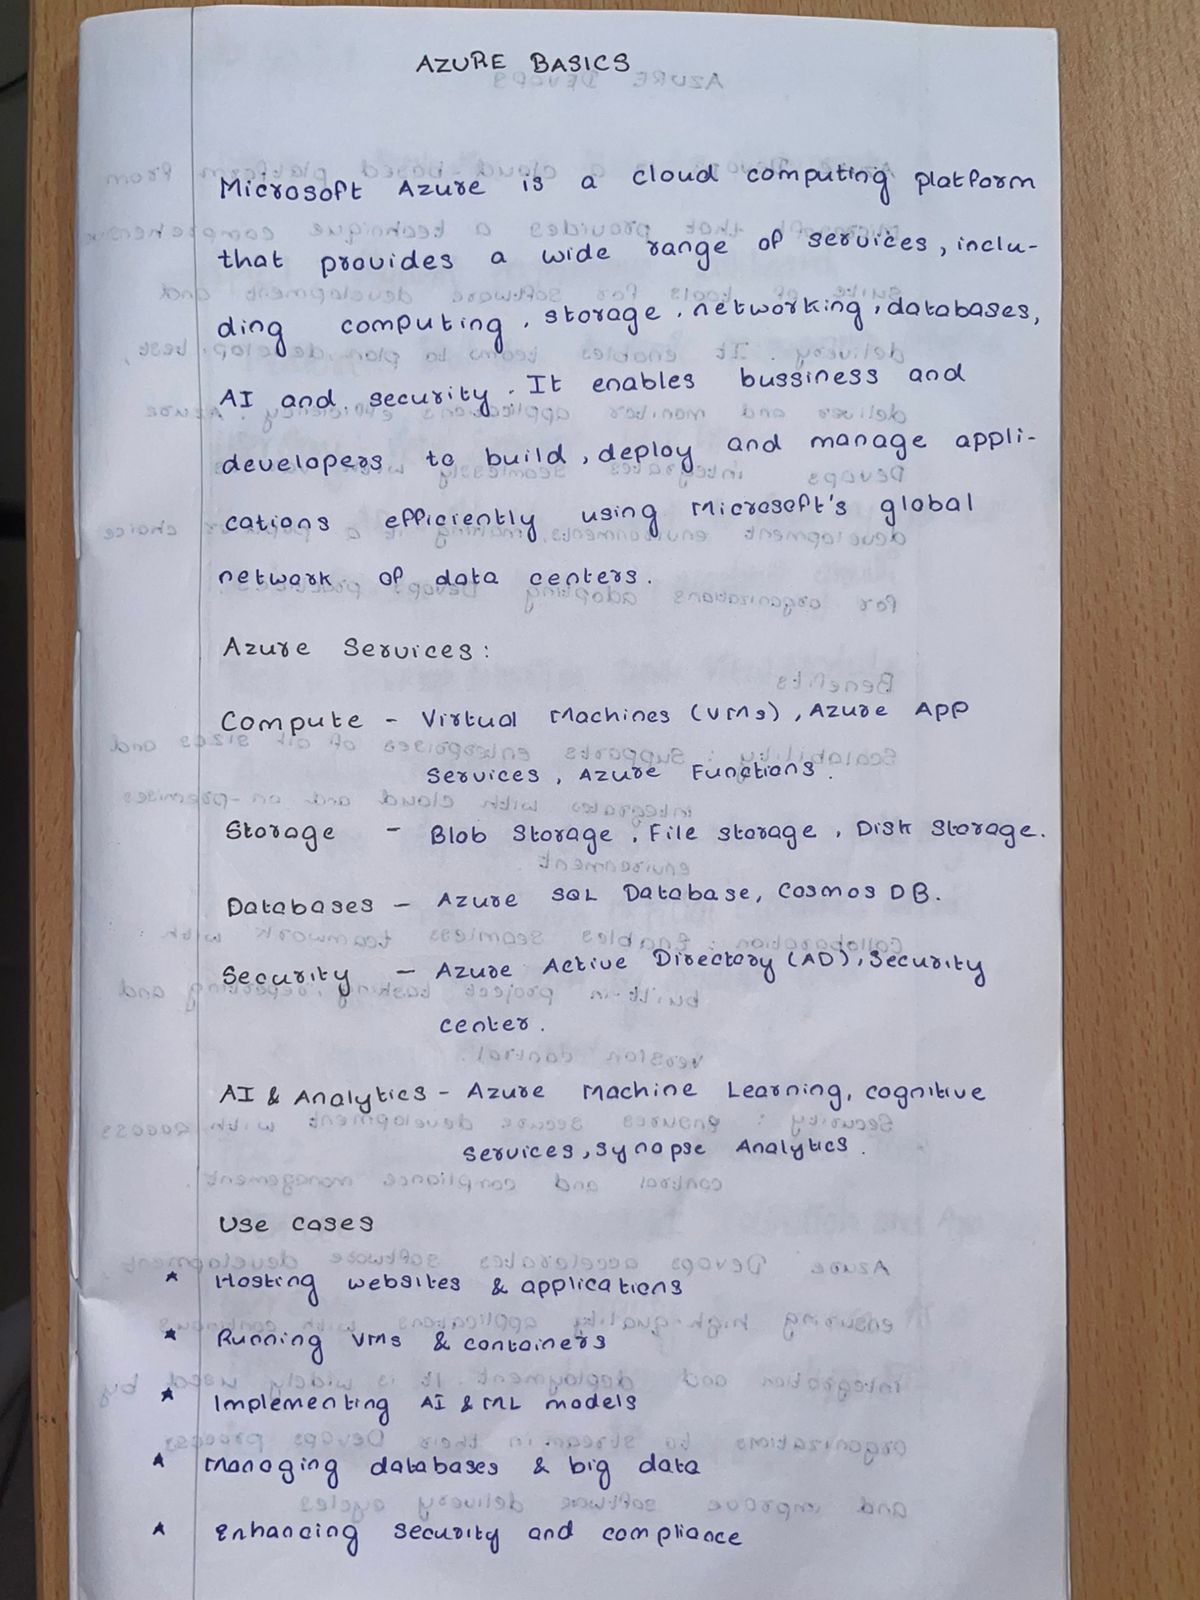 AZURE BASICS
Microsoft Azure is a cloud computing platform
that provides a wide range of services, inclu-
ding computing, storage, networking, databases,
AI and security. It enables bussiness and
developers to build, deploy and manage appli-
cations efficiently using Microsoft's global
network of data centers.
Azure Services:
Compute - Virtual Machines (VMs), Azure App
Services, Azure Functions.
Storage - Blob Storage, File storage, Disk Storage.
Databases - Azure SQL Database, Cosmos DB.
Security - Azure Active Directory (AD), Security
center.
AI & Analytics - Azure Machine Learning, cognitive
services, synapse Analytics.
Use cases
★ Hosting websites & applications
★ Running VMs & containers
★ Implementing AI & ML models
★ Managing databases & big data
★ Enhancing security and compliance